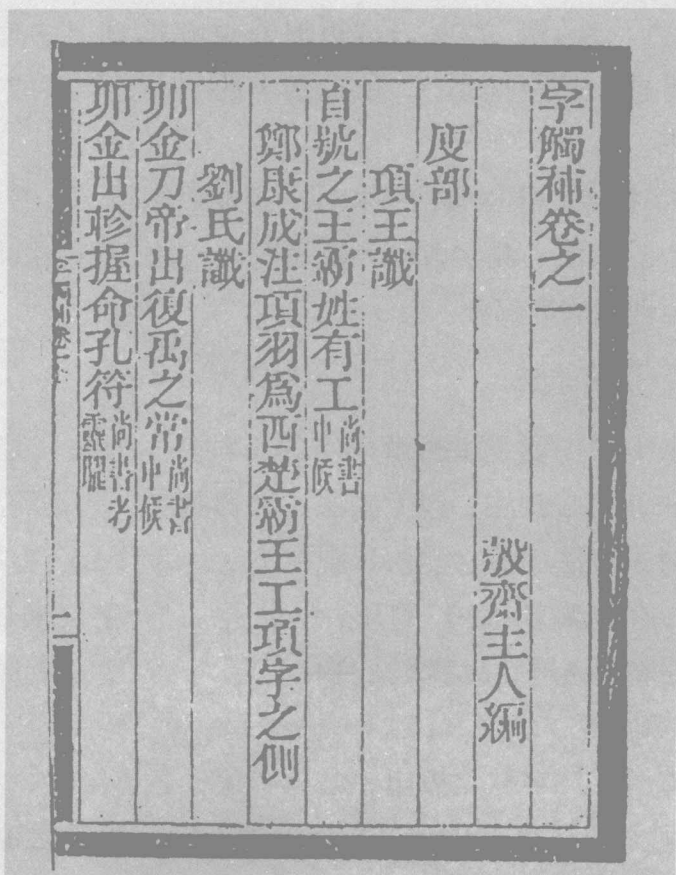 字觸補卷之一
㲄齋主人編
廋部
項王讖
自號之王霸姓有工尚書中候
鄭康成注項羽爲西楚霸王工項字之側
劉氏讖
卯金刀帝出復禹之常尚書中候
卯金出軫握命孔符尚書考靈曜
字觸補卷一
二